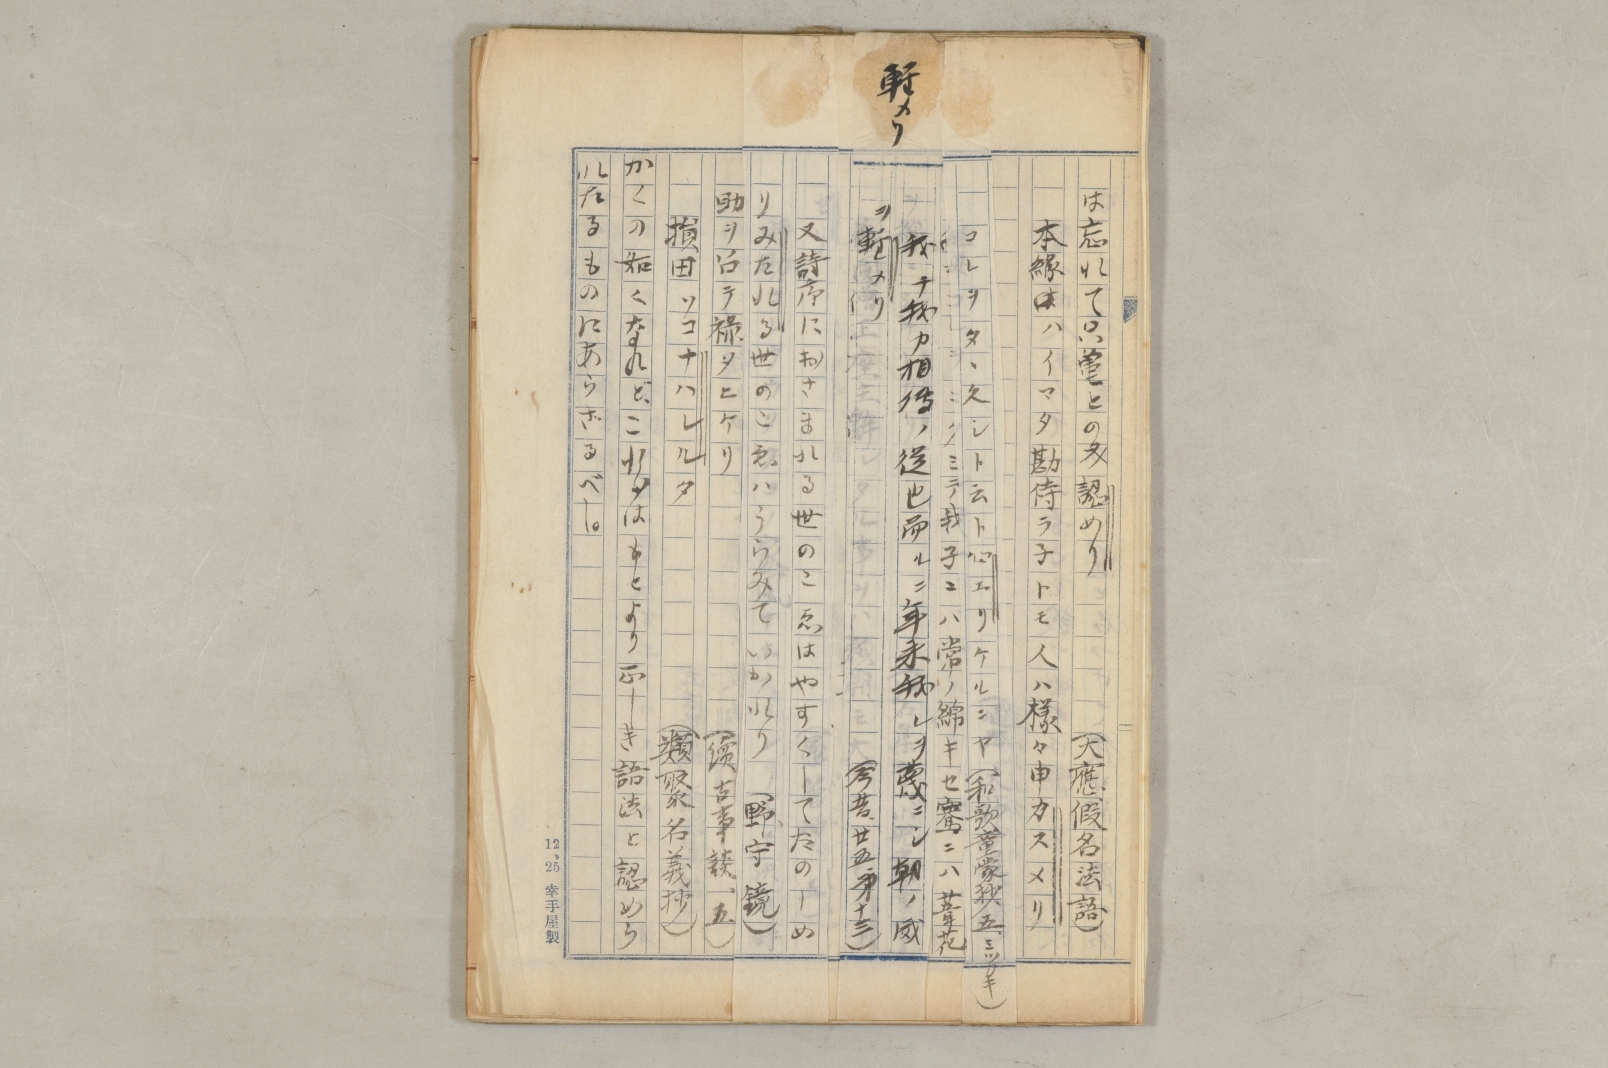 軽メリ
は忘れて只亀との又認めり
(大應假名法語)
本縁ハイマタ勘侍ラ子トモ人ハ様々申カスメリ
コレヲタヽ久シト云ト心エリケルニヤ(和歌童蒙抄五
ミテ我子ニハ常ノ綿キセ騫ニハ葦花
我ナ我カ相傳ノ従也而ルニ年来我レヲ蔑ニシ朝ノ威
ヲ軽メリ
(今昔、廿五第十三)
又詩序におさまれる世のこゑはやすくしてたのしめ
りみたれる世のこゑハうらみていかれり
(野守鏡)
助ヲ召テ禄タヒケリ
(續古事談、五)
損田ソコナハレルタ
(類聚名義抄)
かくの如くなれど、これはもとより正しき語法と認めら
れたるものにあらざるべし。
12、25 幸手屋製